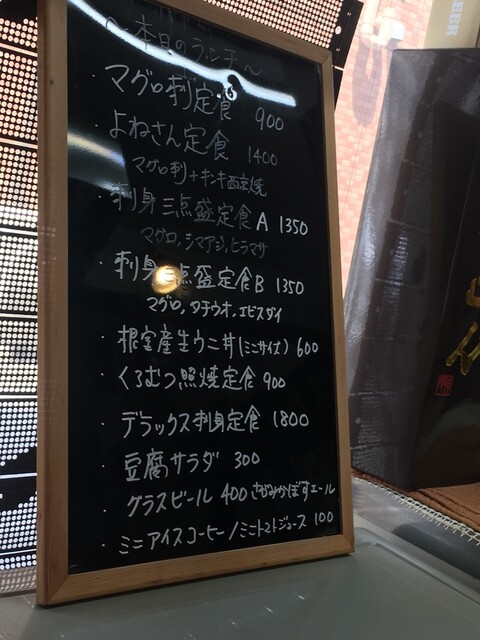 ～本日のランチ～
・マグロ刺定食 900
・よねさん定食 1400
マグロ刺+キンキ西京焼
・刺身三点盛定食A 1350
マグロ、シマアジ、ヒラマサ
・刺身三点盛定食B 1350
マグロ、タチウオ、エビスダイ
・根室産生ウニ丼(ミニサイズ) 600
・くろむつ照焼定食 900
・デラックス刺身定食 1800
・豆腐サラダ 300
・グラスビール 400 さがみかぼすエール
・ミニアイスコーヒー/ミニトマトジュース 100
BEER